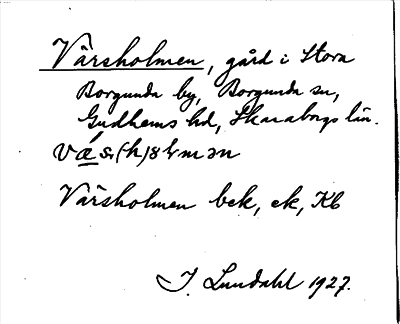 Vårsholmen, gård i Stora
Borgunda by, Borgunda sn,
Gudhems hd, Skaraborgs län.
Vårsholmen bek, ek, Kb
I. Lundahl 1927.